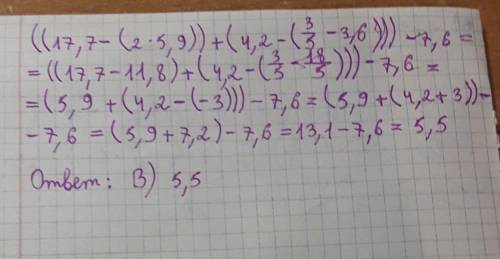 ((17,7-(2·5,9))+(4,2-(3/5-3,6)))-7,6=
=((17,7-11,8)+(4,2-(3/5-18/5)))-7,6=
=(5,9+(4,2-(-3)))-7,6=(5,9+(4,2+3))-
-7,6=(5,9+7,2)-7,6=13,1-7,6=5,5
Ответ: В) 5,5